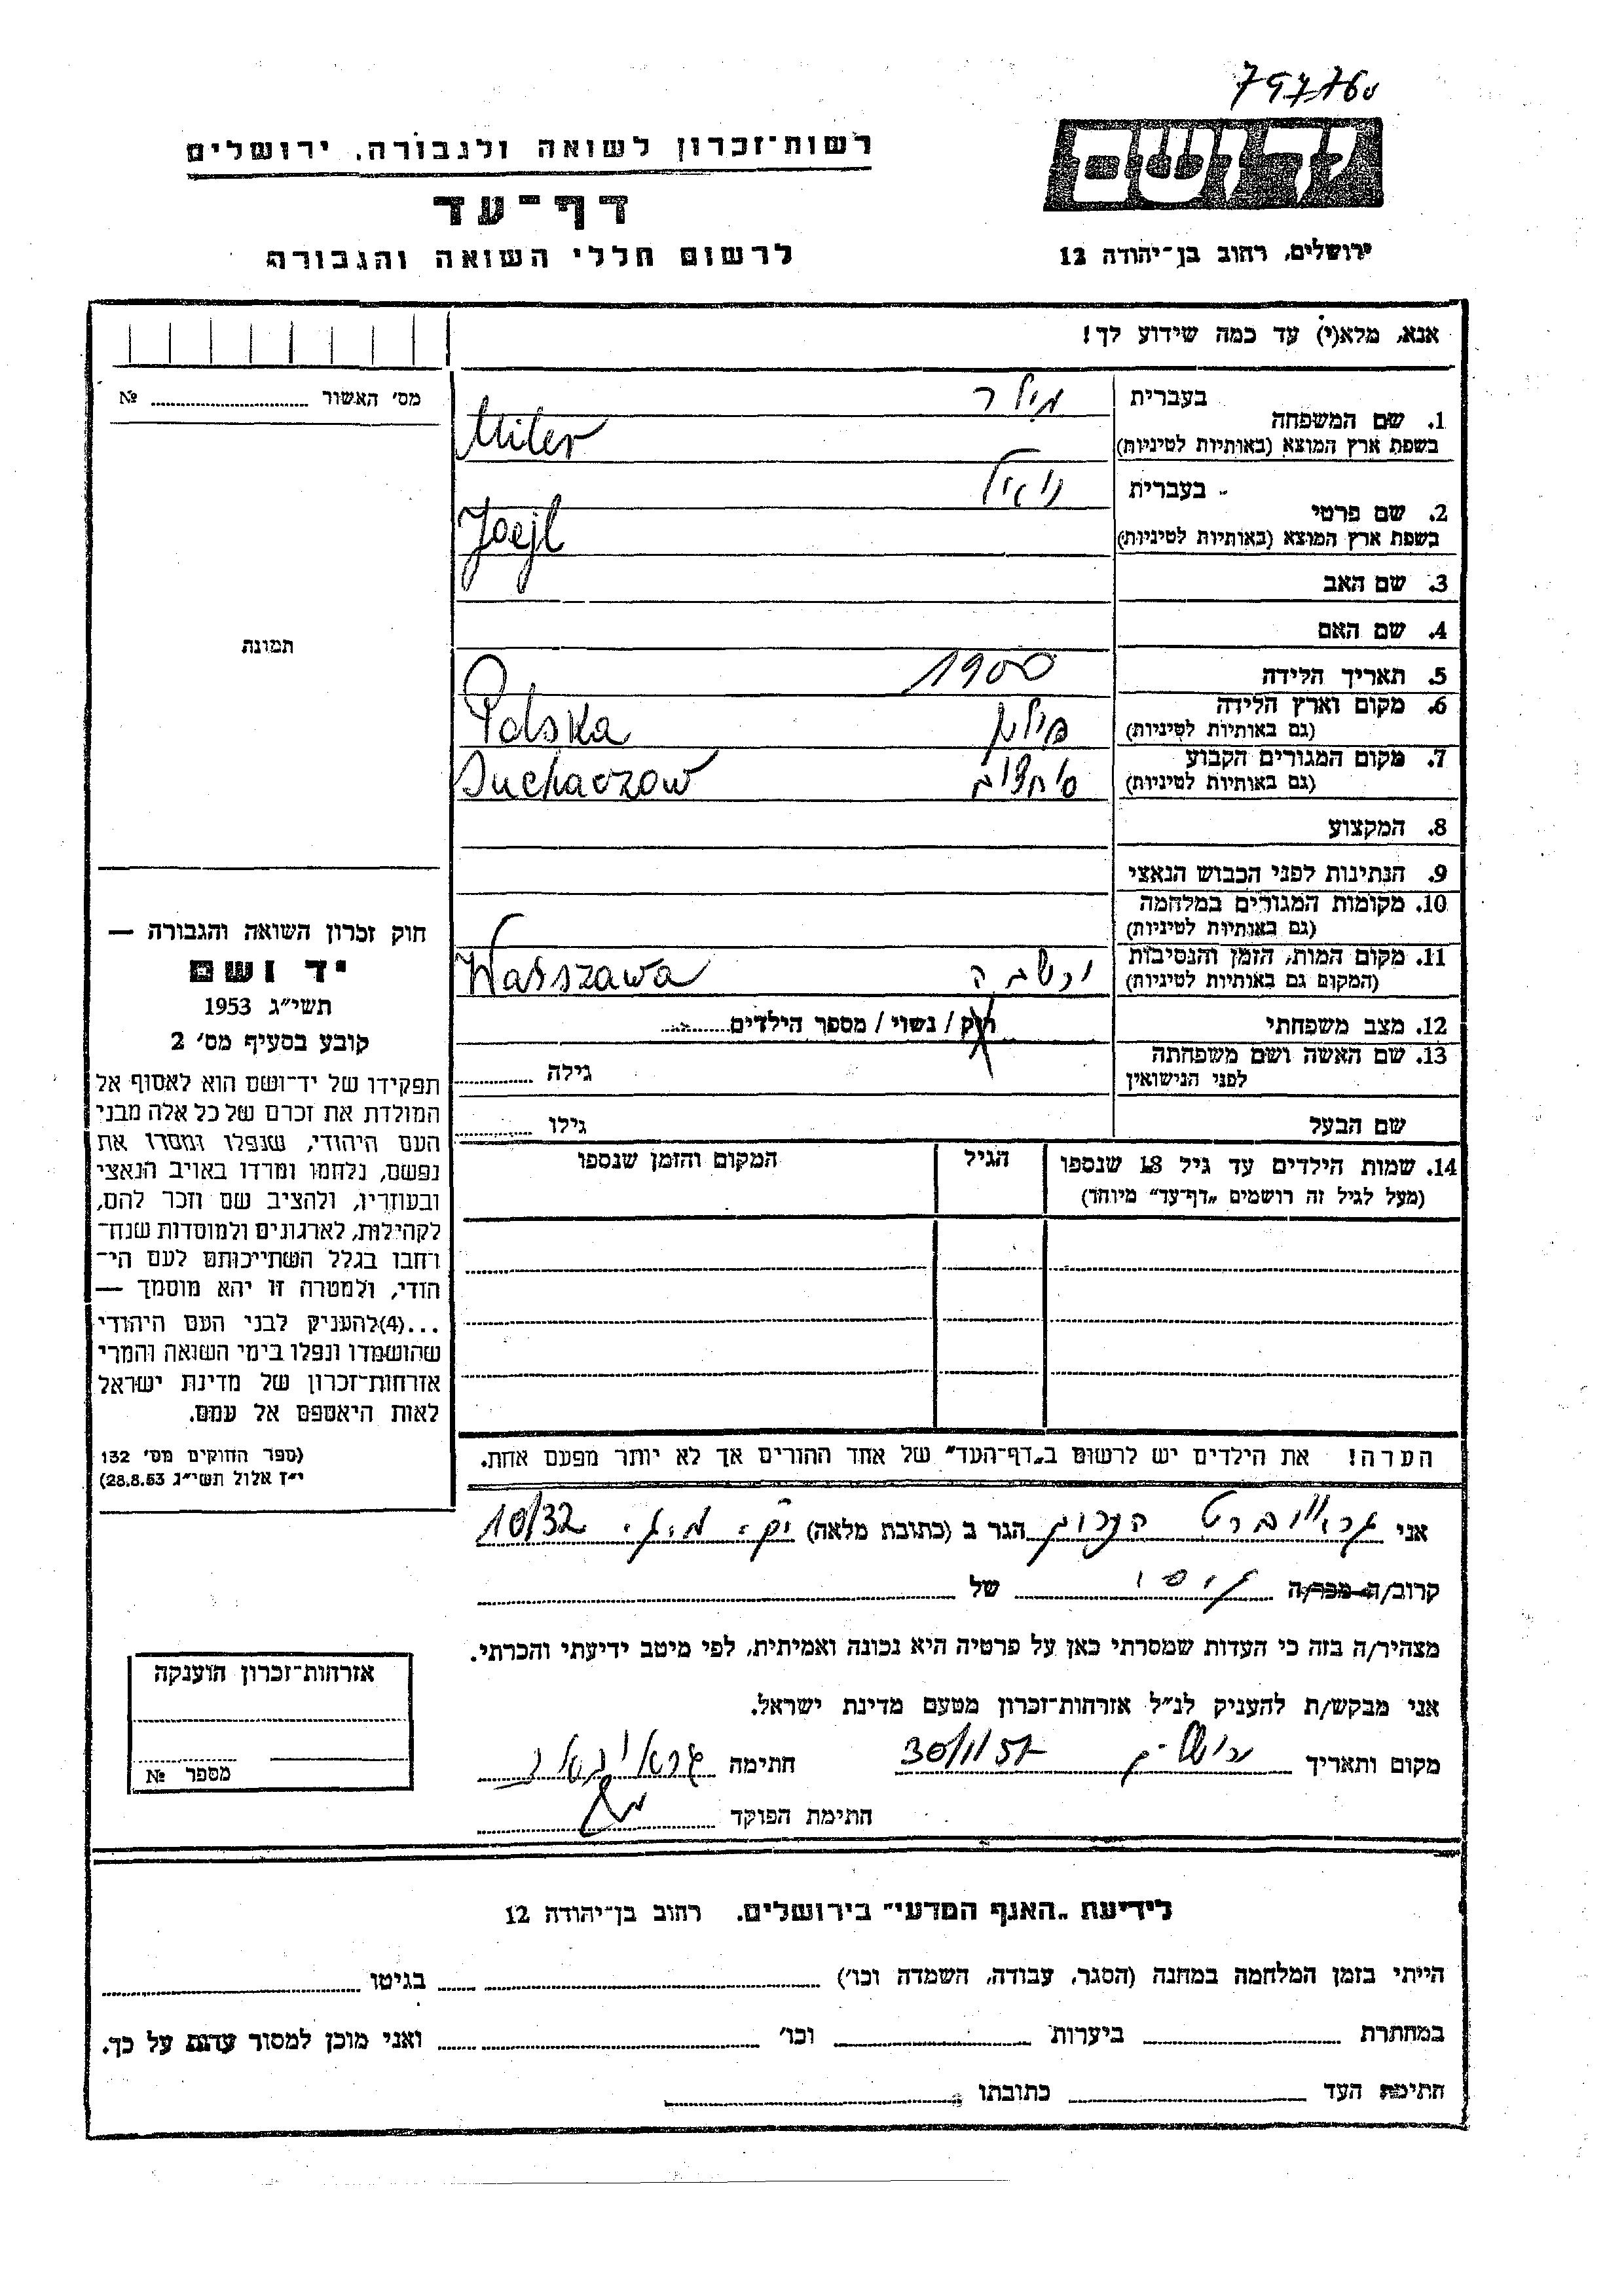 797760
רשות־זכרון לשואה ולגבורה. ירושלים
יד ושם
דף־עד
לרשום חללי השואה והגבורה
ירושלים, רחוב בן־יהודה 12
אנא, מלא(י) עד כמה שידוע לך!
מס׳ האשור № 
תמונה
1. שם המשפחה
בעברית מילר
בשפת ארץ המוצא (באותיות לטיניות) Miler
2. שם פרטי
בעברית יואיל
בשפת ארץ המוצא (באותיות לטיניות) Joejl
3. שם האב
4. שם האם
5. תאריך הלידה 1900
6. מקום וארץ הלידה פולין Polska
(גם באותיות לטיניות)
7. מקום המגורים הקבוע Suchaczow
(גם באותיות לטיניות)
8. המקצוע
9. הנתינות לפני הכבוש הנאצי
10. מקומות המגורים במלחמה
(גם באותיות לטיניות)
11. מקום המות, הזמן והנסיבות ורשבה Warszawa
(המקום גם באותיות לטיניות)
12. מצב משפחתי רוק / נשוי / מספר הילדים
13. שם האשה ושם משפחתה
לפני הנישואין גילה
שם הבעל גילו
14. שמות הילדים עד גיל 18 שנספו הגיל המקום והזמן שנספו
(מעל לגיל זה רושמים „דף־עד״ מיוחד)
הערה! את הילדים יש לרשום ב„דף־העד״ של אחד ההורים אך לא יותר מפעם אחת.
חוק זכרון השואה והגבורה —
יד ושם
תשי״ג 1953
קובע בסעיף מס׳ 2
תפקידו של יד־ושם הוא לאסוף אל
המולדת את זכרם של כל אלה מבני
העם היהודי, שנפלו ומסרו את
נפשם, נלחמו ומרדו באויב הנאצי
ובעוזריו, ולהציב שם וזכר להם,
לקהילות, לארגונים ולמוסדות שנח־
רחבו בגלל השתייכותם לעם הי־
הודי, ולמטרה זו יהא מוסמך —
...(4)להעניק לבני העם היהודי
שהושמדו ונפלו בימי השואה והמרי
אזרחות־זכרון של מדינת ישראל
לאות היאספם אל עמם.
(ספר החוקים מס׳ 132
י״ז אלול תשי״ג 28.8.53)
אני הגר ב (כתובת מלאה) 10/32
קרוב/ה מכר/ה גיסו של
מצהיר/ה בזה כי העדות שמסרתי כאן על פרטיה היא נכונה ואמיתית, לפי מיטב ידיעתי והכרתי.
אני מבקש/ת להעניק לנ״ל אזרחות־זכרון מטעם מדינת ישראל.
מקום ותאריך ירושלים 30/11/57 חתימה
חתימת הפוקד
אזרחות־זכרון הוענקה
מספר №
לידיעת „האגף המדעי״ בירושלים. רחוב בן־יהודה 12
הייתי בזמן המלחמה במחנה (הסגר, עבודה, השמדה וכו׳) בגיטו
במחתרת ביערות וכו׳ ואני מוכן למסור עדות על כך.
חתימת העד כתובתו